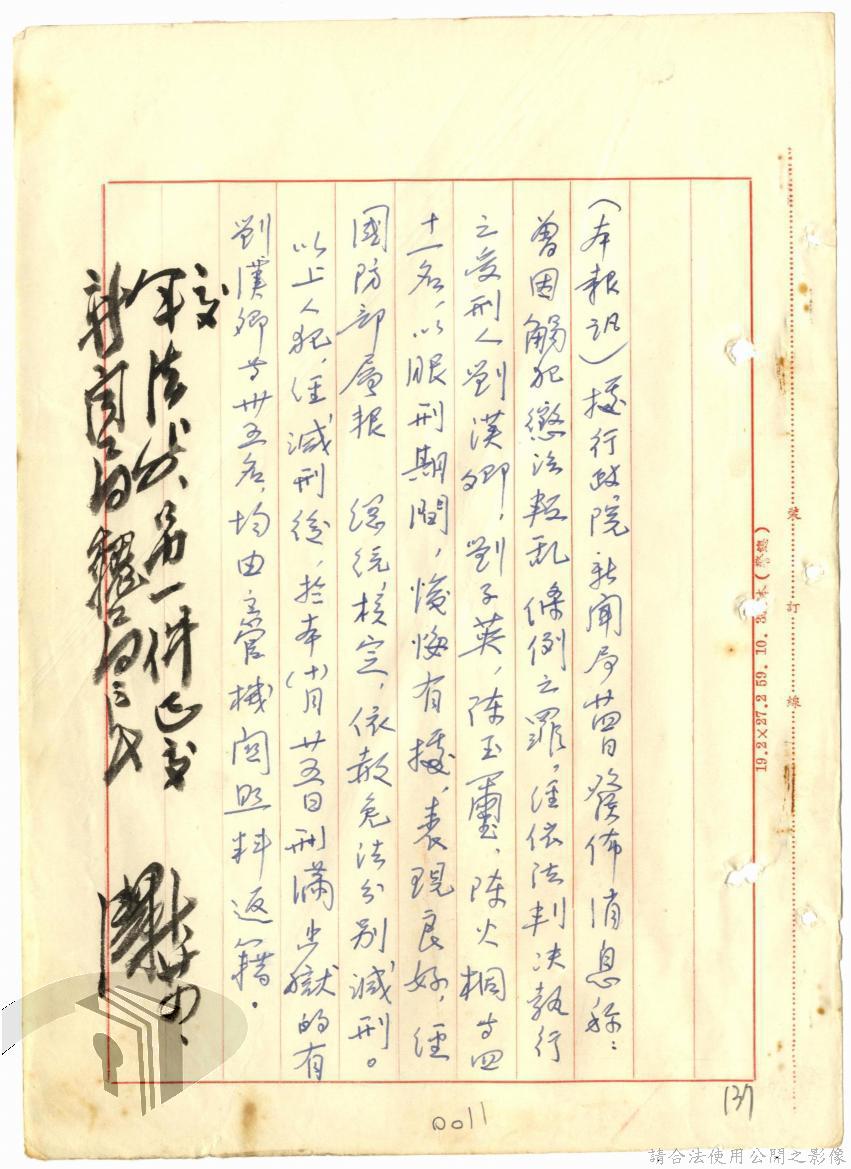 （本報訊）據行政院新聞局廿四日發佈消息称：
曾因觸犯懲治叛乱條例之罪，經依法判决執行
之受刑人劉漢卿，劉子英，陈玉璽，陈火桐等四
十一名，以服刑期間，悛悔有據，表現良好，經
國防部層報　總統核定，依赦免法分别減刑。
以上人犯，經減刑後，於本(十)月廿五日刑滿出獄的有
劉漢卿等卅五名，均由主管機関照料返籍。
交
軍法
第一件已交
新聞局魏局長
裝
訂
線
19.2×27.2 59.10.3
137
0011
請合法使用公開之影像